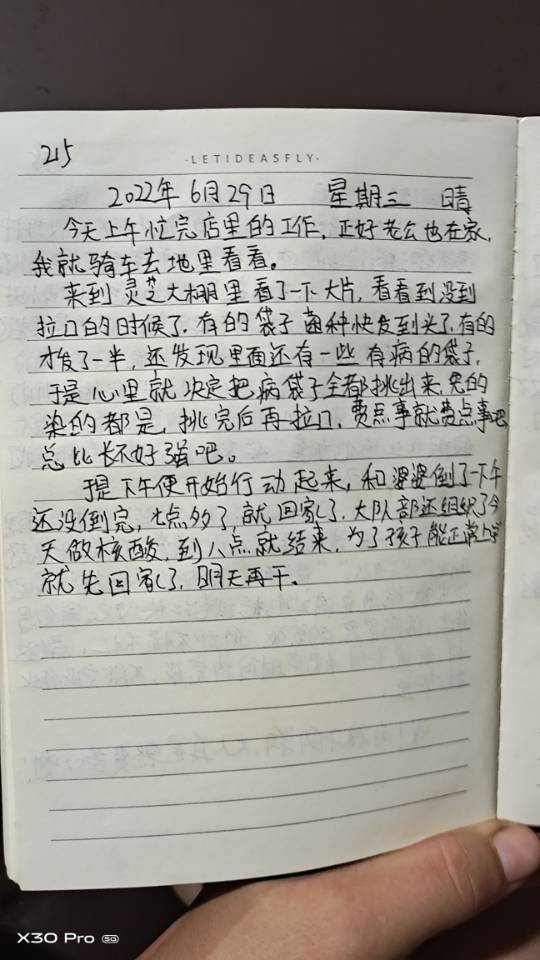 215
·LETIDEASFLY·
2022年6月29日 星期三 晴
今天上午忙完店里的工作，正好老公也在家，
我就骑车去地里看看。
来到灵芝大棚里看了一下大片，看看到没到
拉口的时候了，有的袋子菌种快发到头了，有的
才发了一半，还发现里面还有一些有病的袋子，
于是心里就决定把病袋子全都挑出来，免的
染的都是，挑完后再拉口，费点事就费点事吧
总比长不好强吧。
于是下午便开始行动起来，和婆婆倒了一下午
还没倒完，七点多了，就回家了，大队部还组织了今
天做核酸，到八点就结束，为了孩子能正常上学
就先回家了，明天再干。
X30 Pro 5G